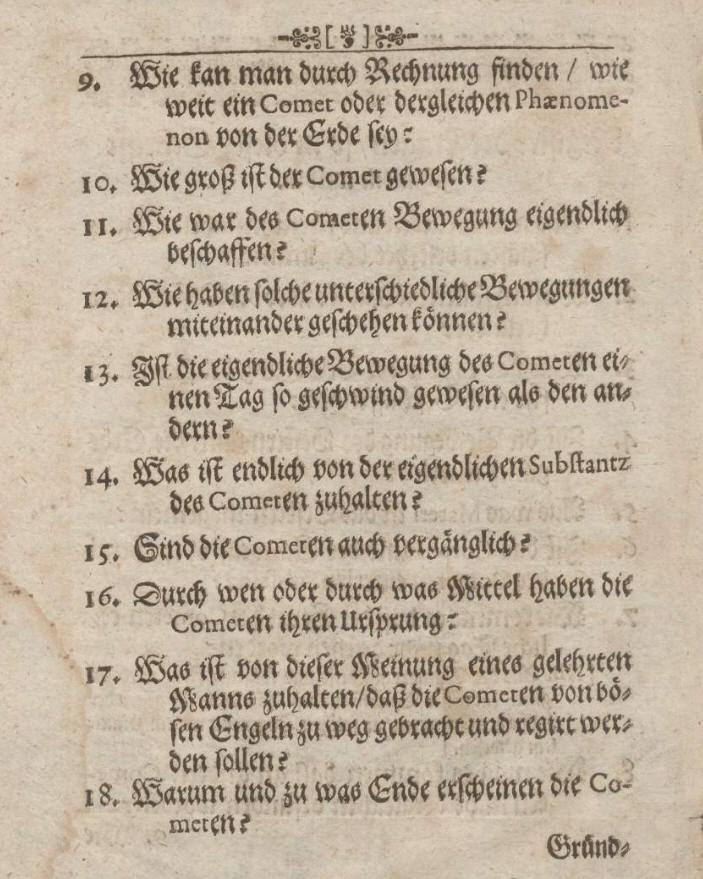 9. Wie kan man durch Rechnung finden / wie
weit ein Comet oder dergleichen Phænome-
non von der Erde sey?
10. Wie groß ist der Comet gewesen?
11. Wie war des Cometen Bewegung eigendlich
beschaffen?
12. Wie haben solche unterschiedliche Bewegungen
miteinander geschehen können?
13. Ist die eigendliche Bewegung des Cometen ei-
nen Tag so geschwind gewesen als den an-
dern?
14. Was ist endlich von der eigendlichen Substantz
des Cometen zuhalten?
15. Sind die Cometen auch vergänglich?
16. Durch wen oder durch was Mittel haben die
Cometen ihren Ursprung?
17. Was ist von dieser Meinung eines gelehrten
Manns zuhalten/daß die Cometen von bö-
sen Engeln zu weg gebracht und regirt wer-
den sollen?
18. Warum und zu was Ende erscheinen die Co-
meten?
Gründ-